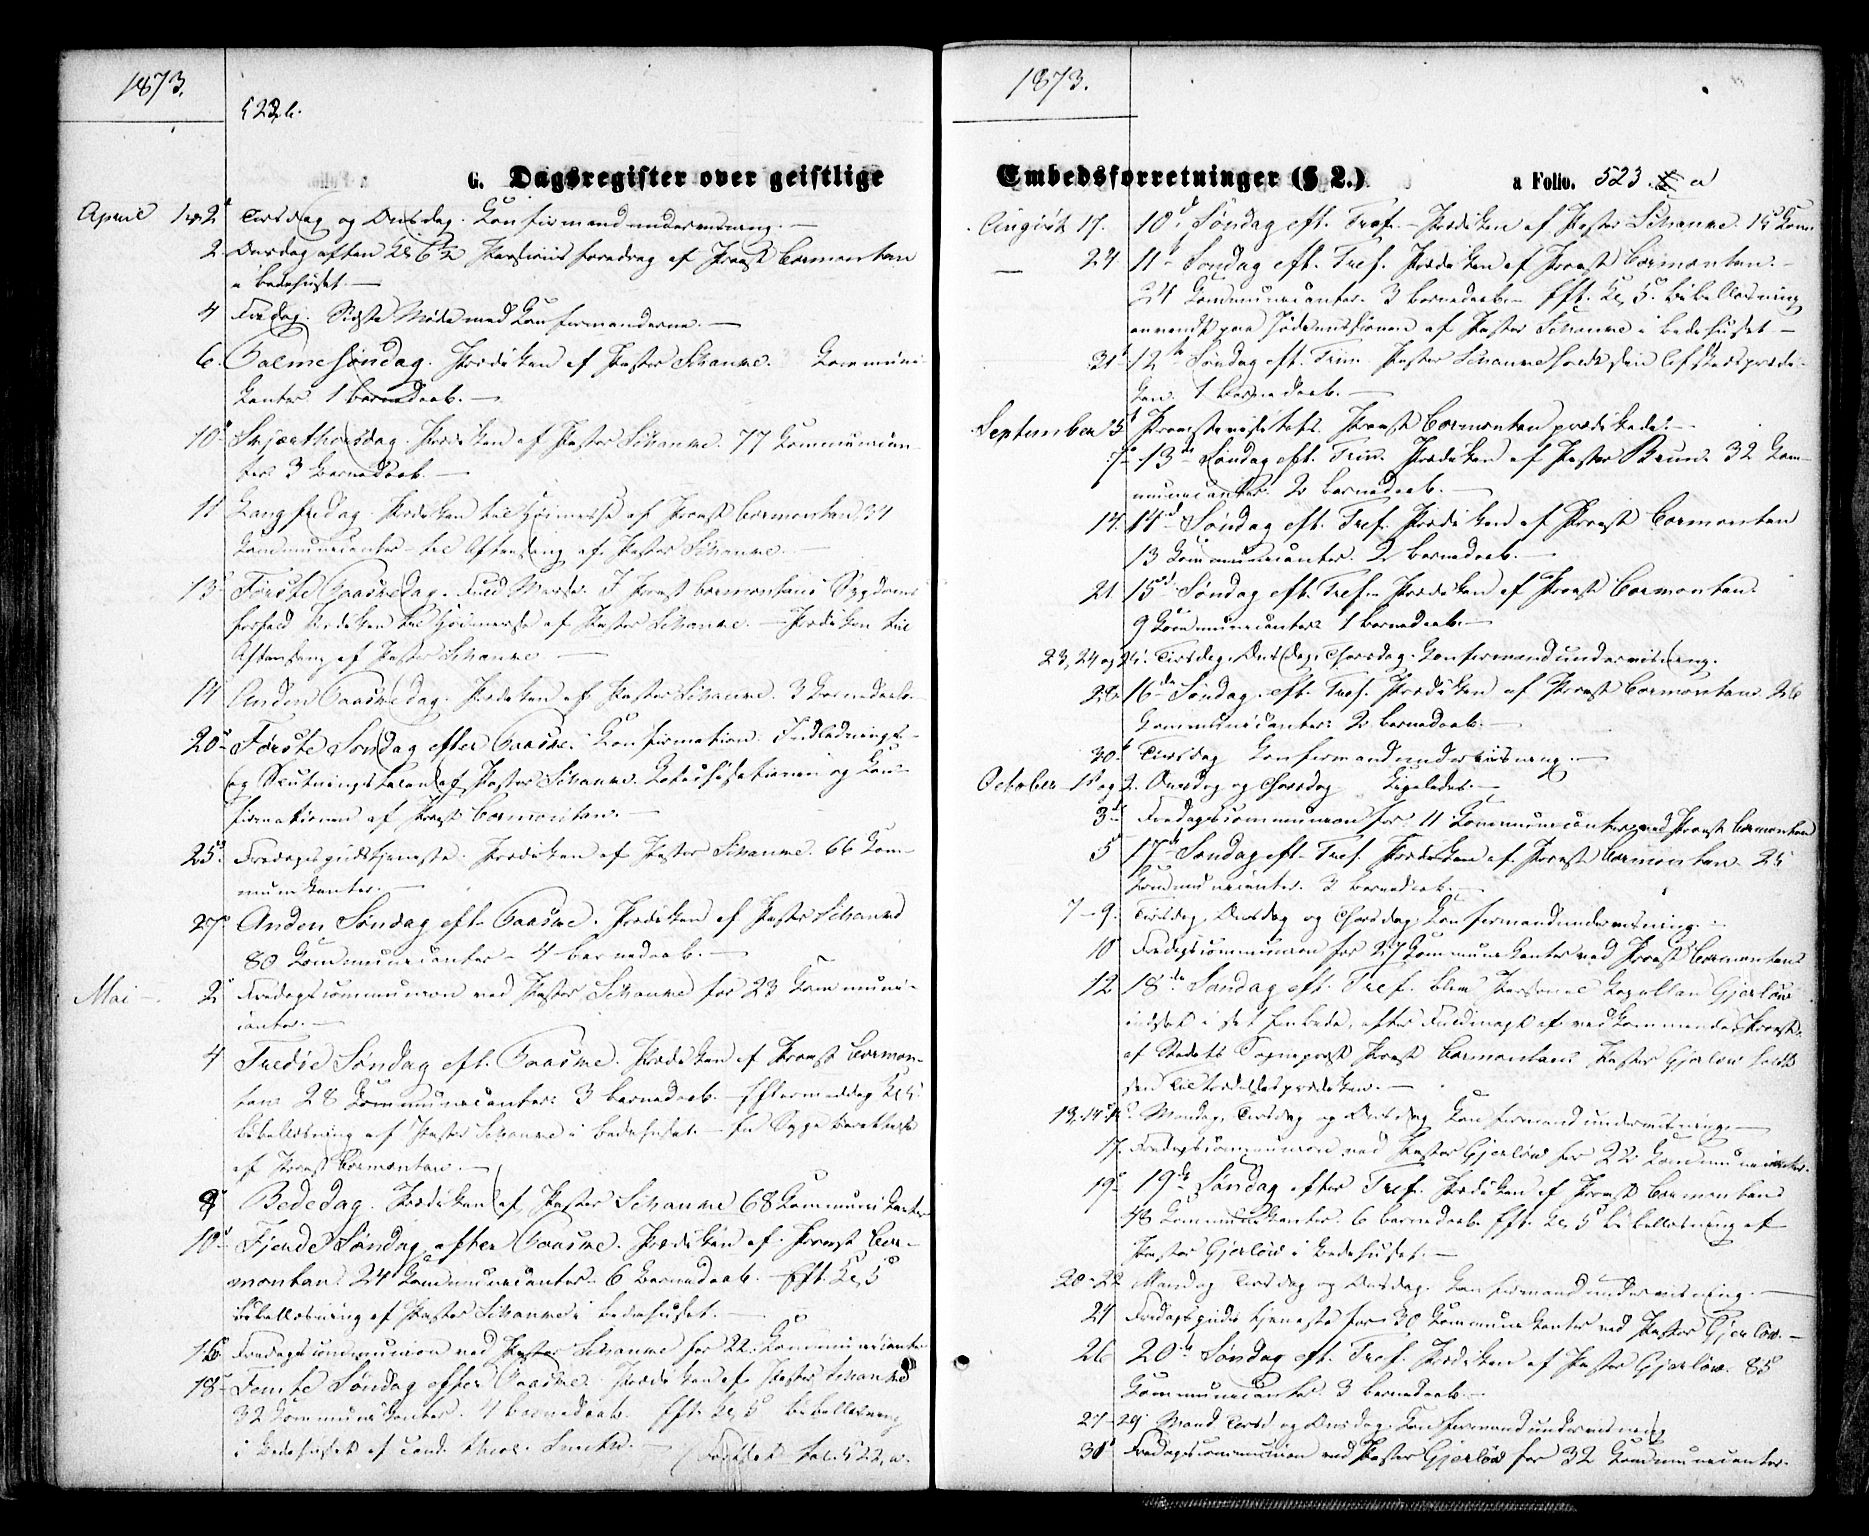 1873.
523,b.
G. Dagsregister over geistlige
April 1 og 2 Tirsdag og Onsdag. Konfirmandundervisning.—
2. Onsdag aften Kl 6½ Passionsforedrag af Provst Cormontan
i Bedehuset.—
4 Fredag. Sidste Møde med Konfirmanderne.—
6. Palmesøndag. Prædiken af Pastor Schanke. Kommuni-
kanter 1 barnedaab.—
10 Skjærthorsdag. Prædiken af Pastor Schanke. 77 Kommunican-
ter. 3 barnedaab.—
11 Langfredag. Prædiken til Høimesse af Provst Cormontan 34
Kommunicanter – til Aftensang af Pastor Schanke.—
13 Første Paaskedag. Fuld Messe. I Provst Cormontans Sygdoms
forfald Prædiken til Høimesse af Pastor Schanke.— Prædiken til
Aftensang af Pastor Schanke —
14 Anden Paaskedag. Prædiken af Pastor Schanke. 3 barnedaab.
20 Første Søndag efter Paaske. Konfirmation. Indlednings-
og Slutningstalen af Pastor Schanke. Katechisationen og Kon-
firmationen af Provst Cormontan.—
25 Fredagsgudstjeneste. Prædiken af Pastor Schanke. 66 Kom-
munikanter.—
27 Anden Søndag eft. Paaske. Prædiken af Pastor Schanke
80 Kommunicanter – 4 barnedaab.—
Mai 2 Fredagscommunion ved Pastor Schanke for 23 Kommuni-
canter.—
4 Tredie Søndag eft. Paaske. Prædiken af Provst Cormon-
tan 28 Kommunicanter. 3 barnedaab. Eftermiddag Kl 5
bibellæsning af Pastor Schanke i bedehuset.— En Syge berettelse
af Provst Cormontan.—
9 Bededag. Prædiken af Pastor Schanke 68 Kommunikanter
10 Fjerde Søndag efter Paaske. Prædiken af Provst Cor-
montan 24 Kommunicanter. 6 barnedaab. Eft. Kl, 5
bibellæsning af Pastor Schanke i bedehuset.—
16 Fredagscommunion ved Pastor Schanke for 22 Kommunicanter
18 Femte Søndag efter Paaske. Prædiken af Pastor Schanke
32 Kommunikanter. 4 barnedaab. Eft. Kl, 5 bibellæsning
i bedehuset af cand. theol. —(Fortsat fol. 522,a.
1873.
Embedsforretninger (§ 2.)
a Folio. 523. a
August 17. 10 Søndag eft. Tref.— Prædiken af Pastor Schanke. 15 Kom
— 24 11 Søndag eft. Tref. Prædiken af Provst Cormontan.—
24 Kommunicanter. 3 barnedaab.— Eft. Kl, 5 bibellæsning
anvendt paa Jødemissionen af Pastor Schanke i bedehuset —
31 12 Søndag eft. Trin. Pastor Schanke holdt sin Afskedsprædi-
ken. 1 barnedaab.—
September 3 Provstevisitats. Provst Cormontan prædikede.—
7 13 Søndag eft. Trin. Prædiken af Pastor Bruun. 32 Kom-
municanter. 2 barnedaab.—
14. 14 Søndag eft. Tref. Prædiken af Provst Cormontan
13 Kommunicanter. 2 barnedaab.—
21 15 Søndag eft. Tref. Prædiken af Provst Cormontan.
9 Kommunicanter. 1 barnedaab.—
23, 24 og 25. Tirsdag, Onsdag, Thorsdag. Konfirmandundervisning.
28 16 Søndag. eft. Tref. Prædiken af Provst Cormontan. 26
Kommunicanter. 2 barnedaab.—
30 Tirsdag Konfirmandundervisning.—
October 1 og 2. Onsdag og Thorsdag Ligeledes.—
3 Fredagscommunion for 11 Kommunicanter ved Provst Cormontan
5 17 Søndag eft. Tref. Prædiken af Provst Cormontan. 25
Kommunicanter. 3 barnedaab.—
7–9. Tirsdag, Onsdag og Thorsdag Konfirmandundervisning.—
10 Fredagscommunion for 27 Kommunikanter ved Provst Cormontan
12 18 Søndag eft. Tref. blev Personel Kapellan Gjerløw
indsat i sit Embede, efter Fuldmagt af vedkommende Provst,
af Stedets Sognepræst Provst Cormontan. Pastor Gjerløw holdt
sin Tiltrædelsesprædiken.—
13, 14, 15 Mandag, Tirsdag og Onsdag Konfirmandundervisning.—
17. Fredagscommunion ved Pastor Gjerløw for 22 Kommunicanter.
19 19 Søndag efter Tref. Prædiken af Provst Cormontan
48 Kommunikanter. 6 barnedaab. Eft. Kl, 5 bibellæsning af
Pastor Gjerløw i bedehuset.—
20–22 Mandag Tirsdag og Onsdag. Konfirmandundervisning.—
24 Fredagsgudstjeneste for 30 Kommunikanter ved Pastor Gjerløw.—
26 20 Søndag eft. Tref. Prædiken af Pastor Gjerløw. 85
Kommunicanter. 3 barnedaab.—
27–29. Mand Tirsd og Onsdag. Konfirmandundervisning
31 Fredagscommunion ved Pastor Gjerløw for 32 Kommunicanter.